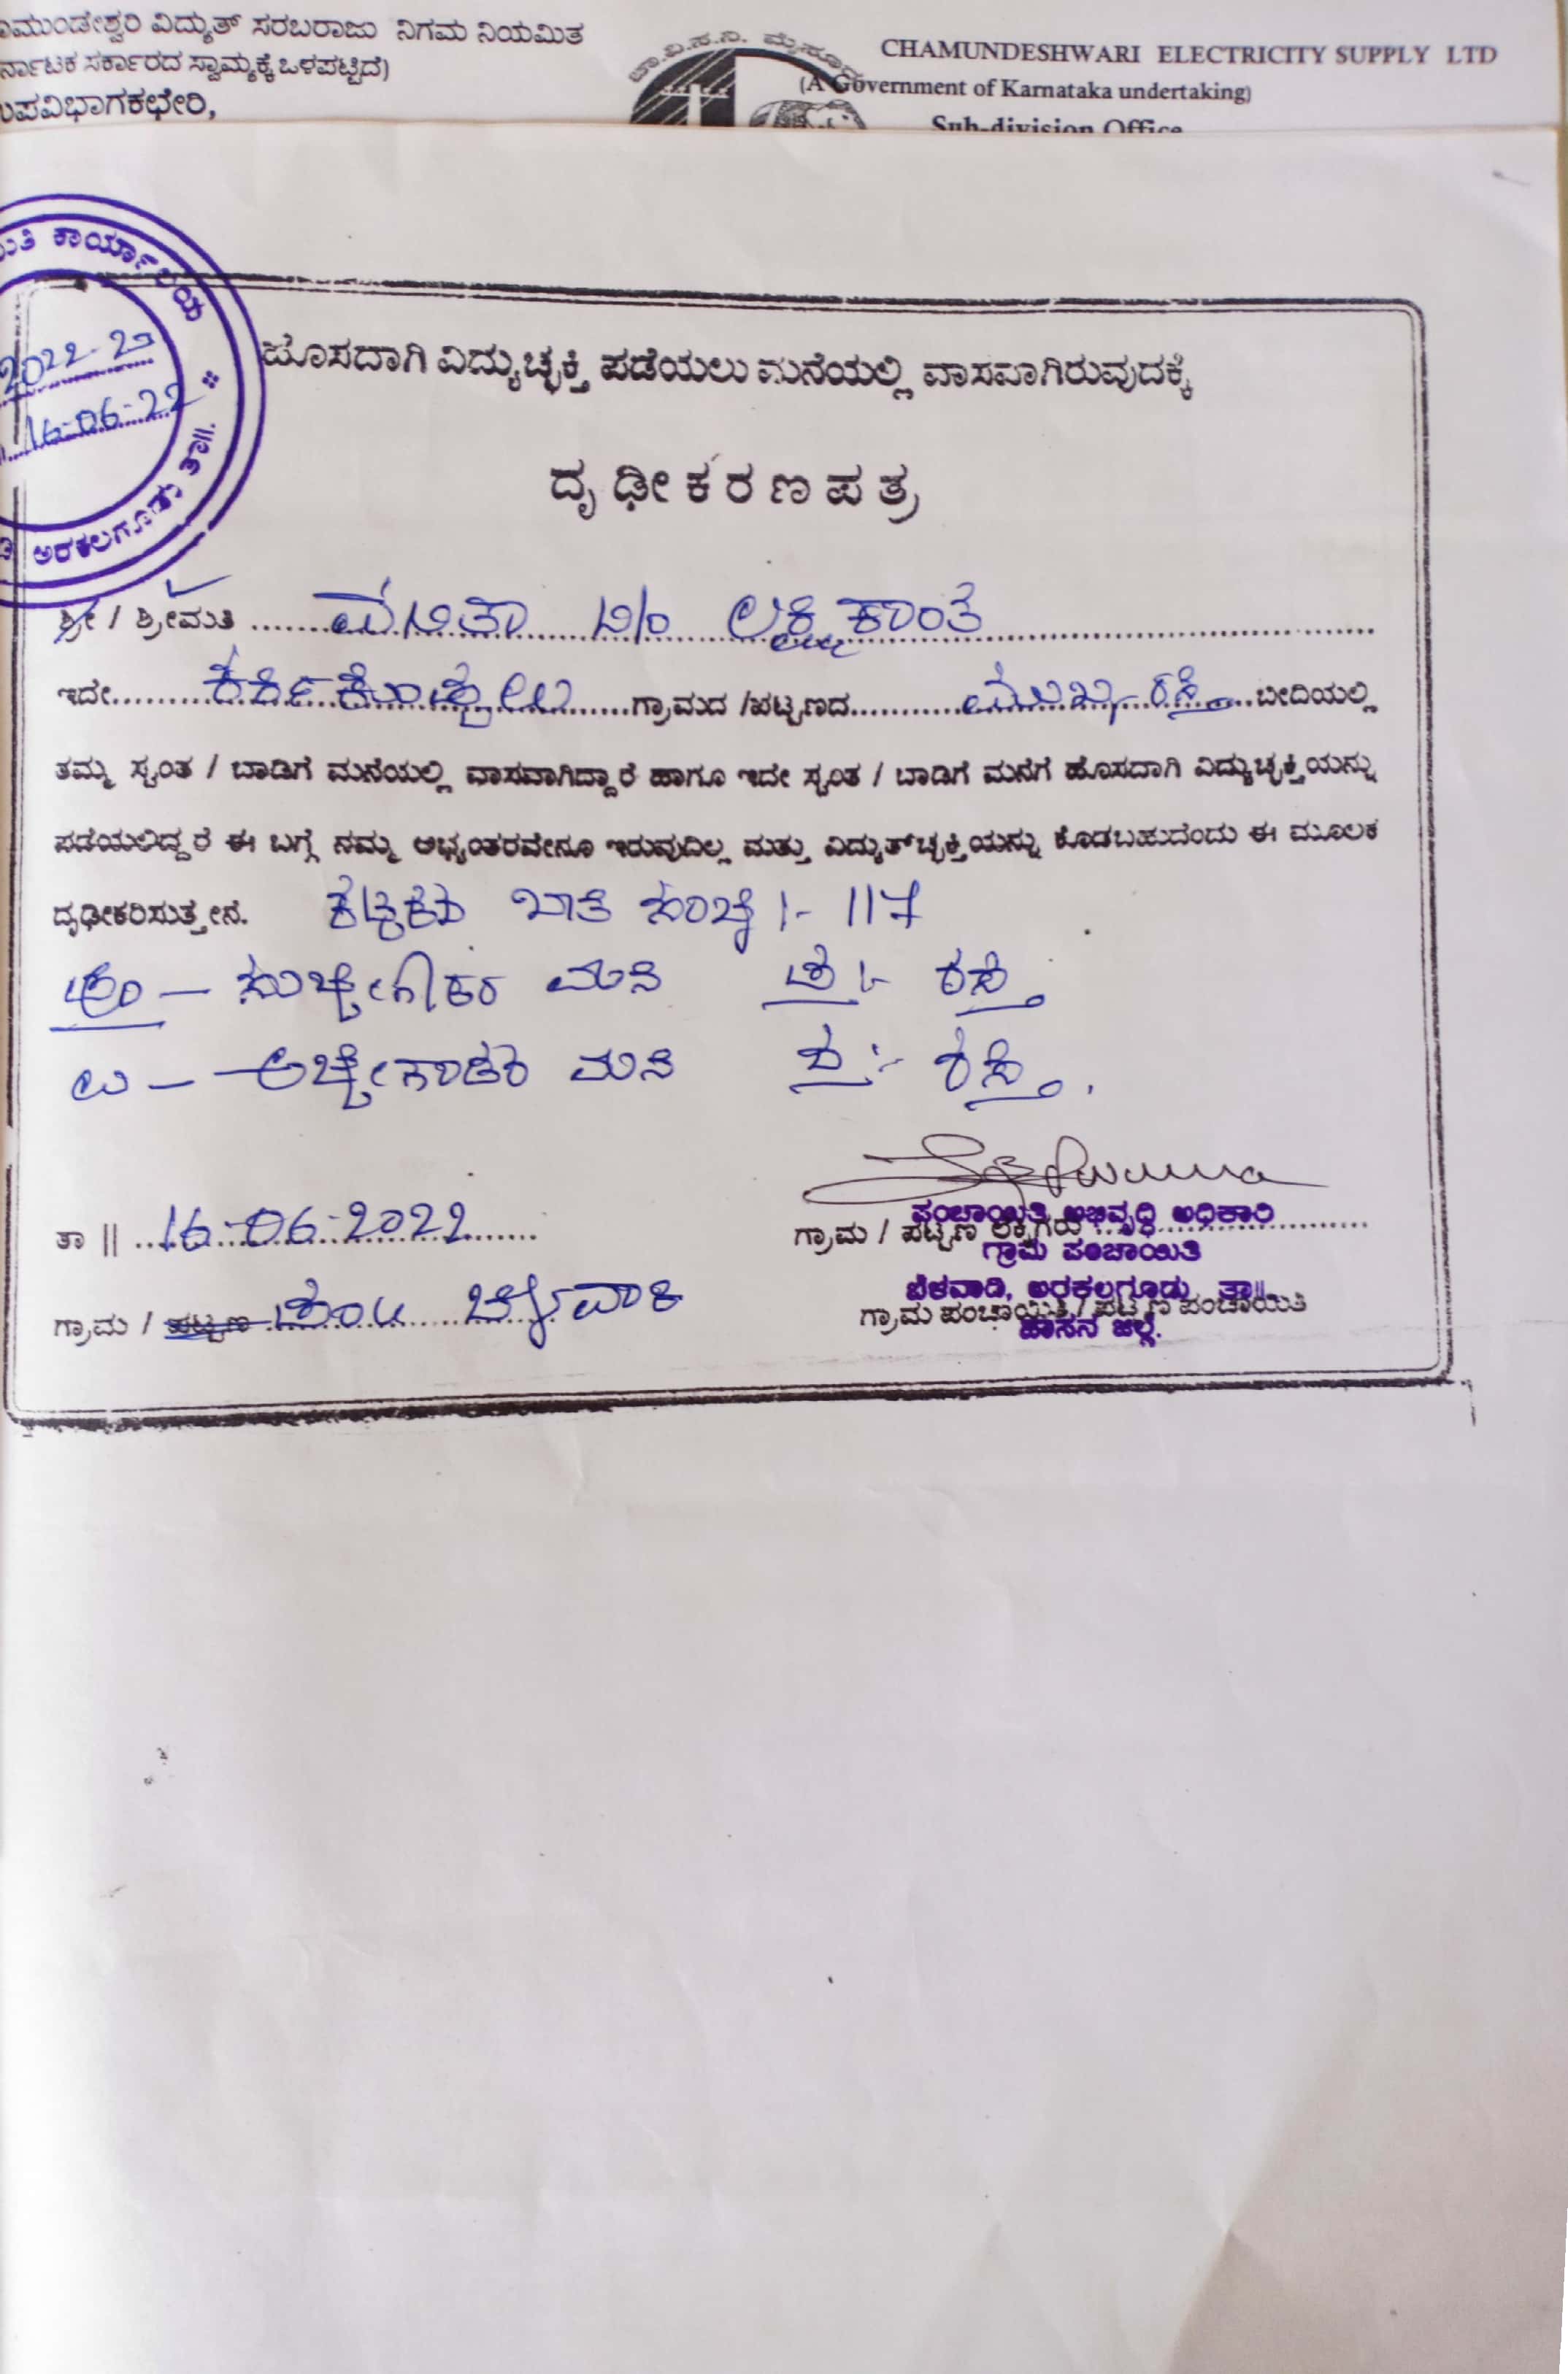 ಾಮುಂಡೇಶ್ವರಿ ವಿದ್ಯುತ್ ಸರಬರಾಜು ನಿಗಮ ನಿಯಮಿತ
ರ್ನಾಟಕ ಸರ್ಕಾರದ ಸ್ವಾಮ್ಯಕ್ಕೆ ಒಳಪಟ್ಟಿದೆ)
ಉಪವಿಭಾಗಕಛೇರಿ,
ಚಾ.ವಿ.ಸ.ನಿ. ಮೈಸೂರು
CHAMUNDESHWARI ELECTRICITY SUPPLY LTD
(A Government of Karnataka undertaking)
Sub-division Office
ಕಾರ್ಯಾಲಯ
2022-23
16-06-22
ಅರಕಲಗೂಡು ತಾ||.
ಹೊಸದಾಗಿ ವಿದ್ಯುಚ್ಛಕ್ತಿ ಪಡೆಯಲು ಮನೆಯಲ್ಲಿ ವಾಸವಾಗಿರುವುದಕ್ಕೆ
ದೃಢೀಕರಣಪತ್ರ
ಶ್ರೀ / ಶ್ರೀಮತಿ ........ ಲಕ್ಷ್ಮಿಕಾಂತ
ಇದೇ........ ಗ್ರಾಮದ /ಪಟ್ಟಣದ........ ಮುಖ್ಯ ರಸ್ತೆ ಬೀದಿಯಲ್ಲಿ
ತಮ್ಮ ಸ್ವಂತ / ಬಾಡಿಗೆ ಮನೆಯಲ್ಲಿ ವಾಸವಾಗಿದ್ದಾರೆ ಹಾಗೂ ಇದೇ ಸ್ವಂತ / ಬಾಡಿಗೆ ಮನೆಗೆ ಹೊಸದಾಗಿ ವಿದ್ಯುಚ್ಛಕ್ತಿಯನ್ನು
ಪಡೆಯಲಿದ್ದರೆ ಈ ಬಗ್ಗೆ ನಮ್ಮ ಅಭ್ಯಂತರವೇನೂ ಇರುವುದಿಲ್ಲ ಮತ್ತು ವಿದ್ಯುತ್‌ಚ್ಛಕ್ತಿಯನ್ನು ಕೊಡಬಹುದೆಂದು ಈ ಮೂಲಕ
ದೃಢೀಕರಿಸುತ್ತೇನೆ. ಖಾತೆ ಸಂಖ್ಯೆ :- 117
ಮನೆ ರಸ್ತೆ
ಮನೆ ರಸ್ತೆ .
ತಾ || ..16-06-2022........
ಪಂಚಾಯಿತಿ ಅಭಿವೃದ್ಧಿ ಅಧಿಕಾರಿ
ಗ್ರಾಮ / ಪಟ್ಟಣ ಲೆಕ್ಕಿಗರು :........
ಗ್ರಾಮ ಪಂಚಾಯಿತಿ
ಬೆಳವಾಡಿ, ಅರಕಲಗೂಡು ತಾ||
ಗ್ರಾಮ ಪಂಚಾಯಿತಿ / ಪಟ್ಟಣ ಪಂಚಾಯಿತಿ
ಹಾಸನ ಜಿಲ್ಲೆ.
ಗ್ರಾಮ / ಪಟ್ಟಣ ........ ಬೆಳವಾಡಿ